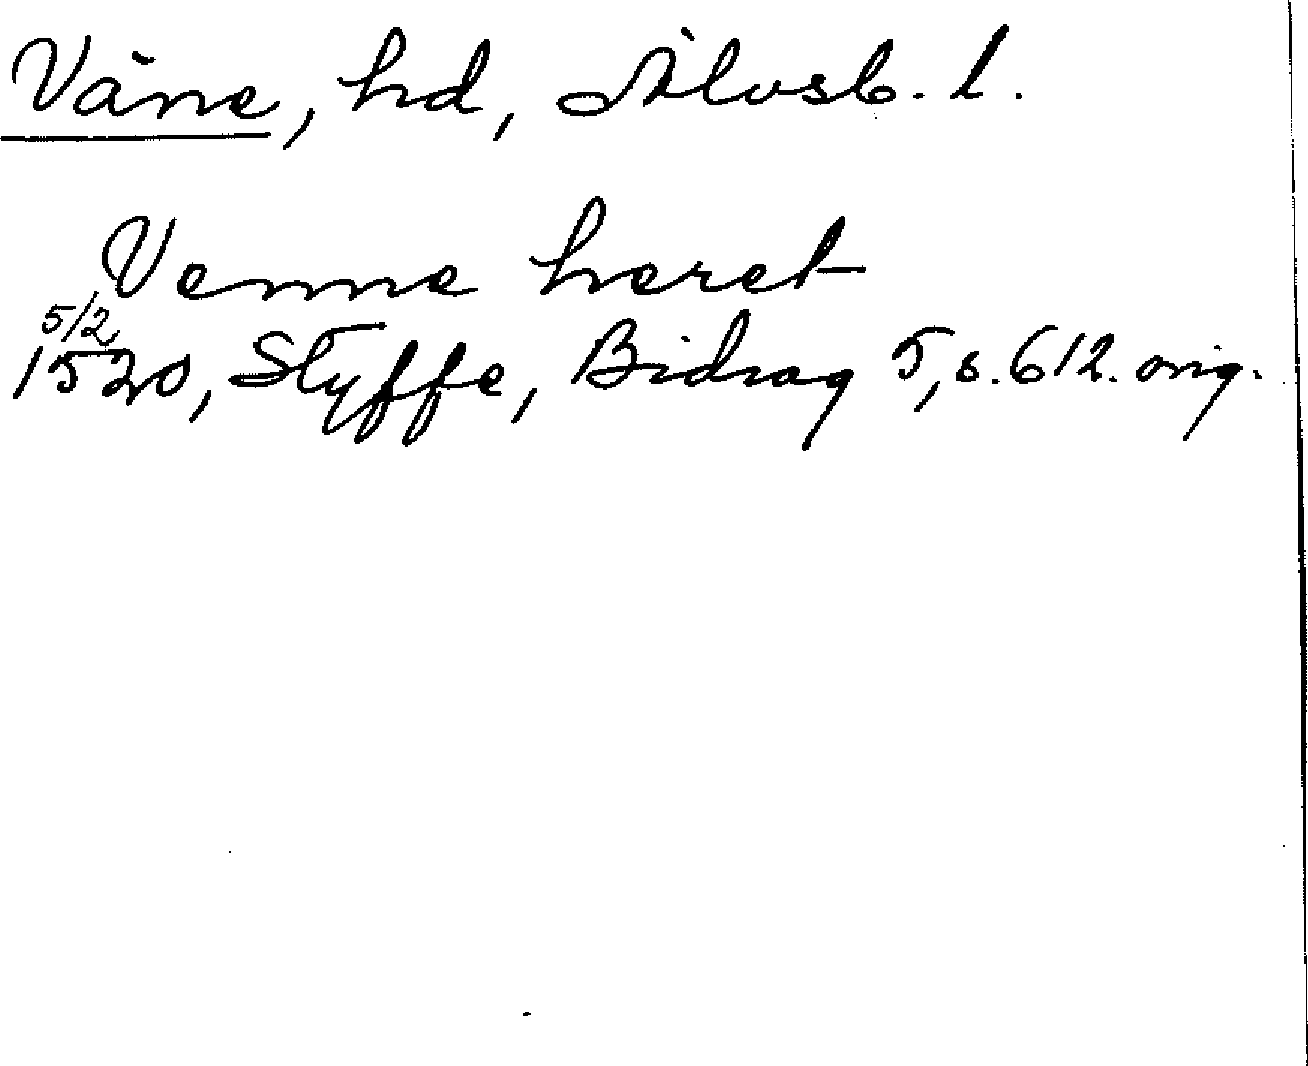 Väne, hd, Älvsb. l.
Venne heret
5/2
1520, Styffe, Bidrag 5, s. 612. orig.